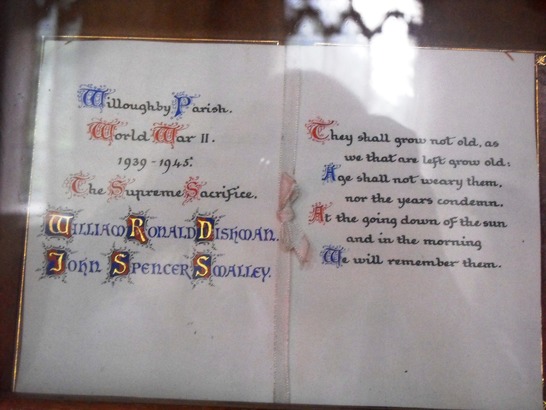 Willoughby Parish.
World War II.
1939-1945.
The Supreme Sacrifice.
William Ronald Dishman.
John Spencer Smalley.
They shall grow not old, as
we that are left grow old:
Age shall not weary them,
nor the years condemn.
At the going down of the sun
and in the morning
We will remember them.